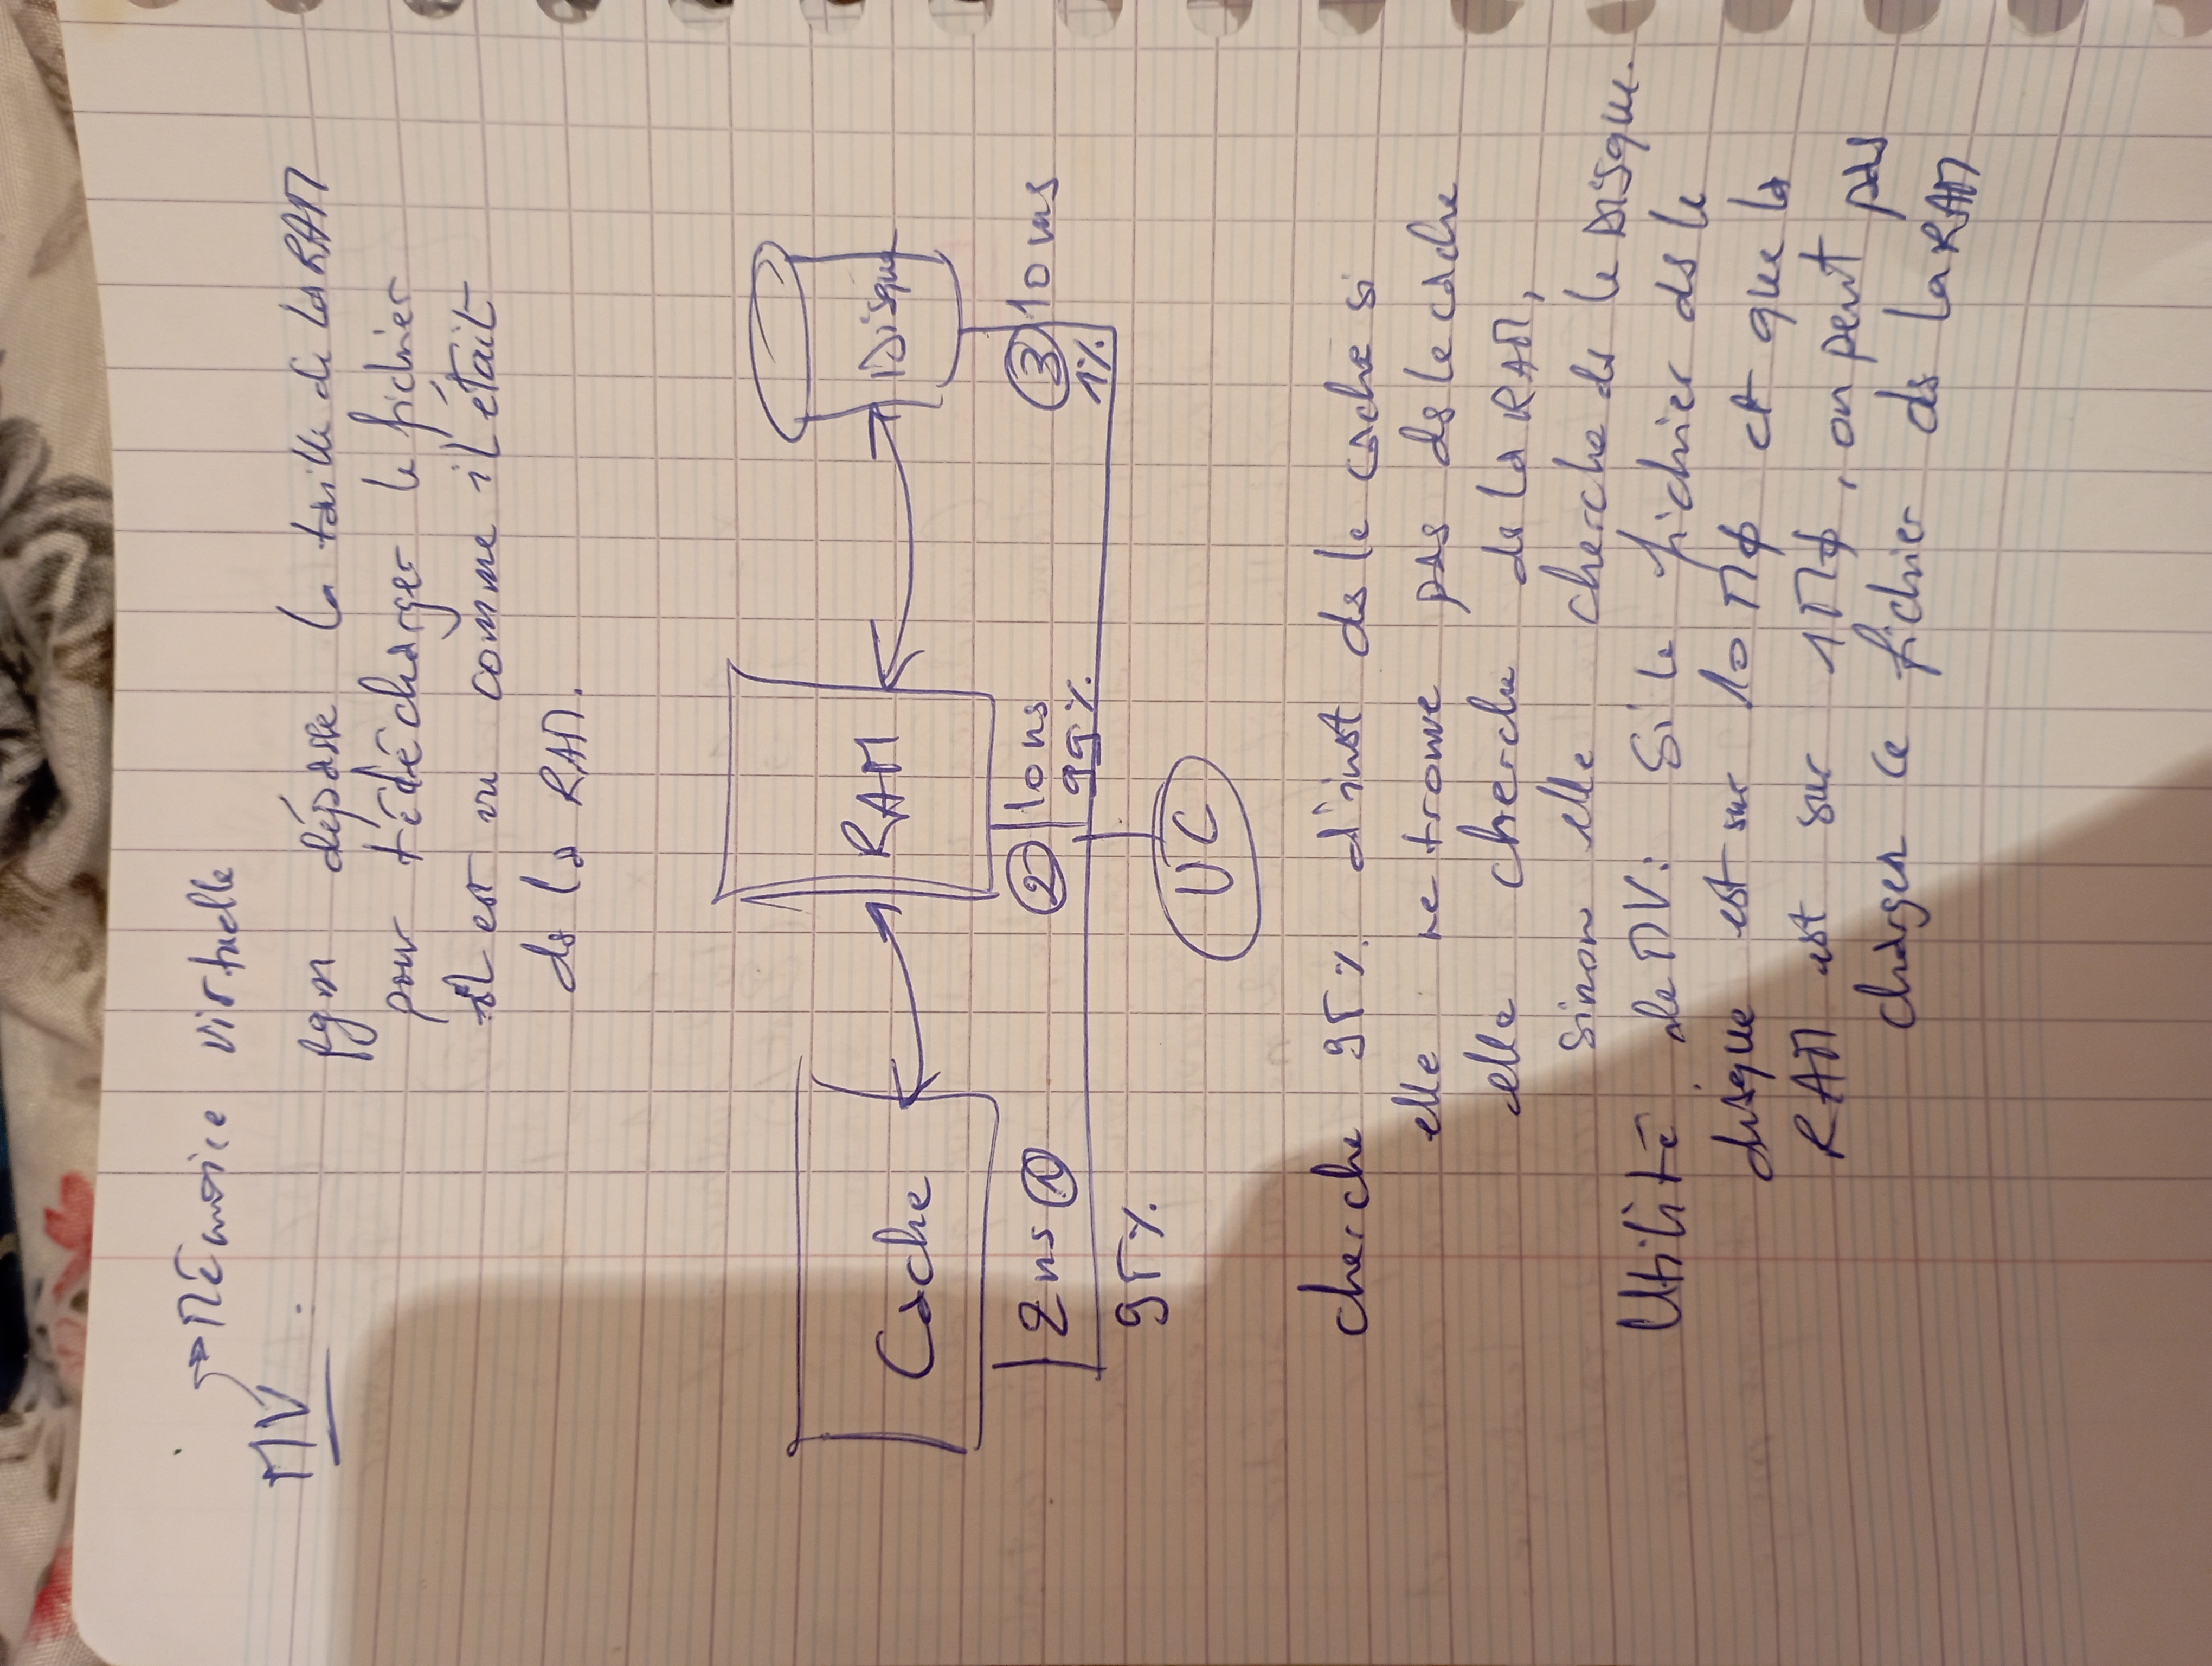 MV : → Mémoire virtuelle
pgm dépasse la taille de la RAM
pour télécharger le fichier
il est vu comme il était
ds la RAM.
Cache RAM Disque
2ns ① ② 10ns ③ 10ms
95% 99% 1%
UC
cherche 95% d'inst ds le cache si
elle ne trouve pas ds le cache
elle cherche ds la RAM,
sinon elle cherche ds le disque.
Utilité de MV: Si le fichier ds le
disque est sur 10 Mo et que la
RAM est sur 1Mo, on peut pas
charger ce fichier ds la RAM